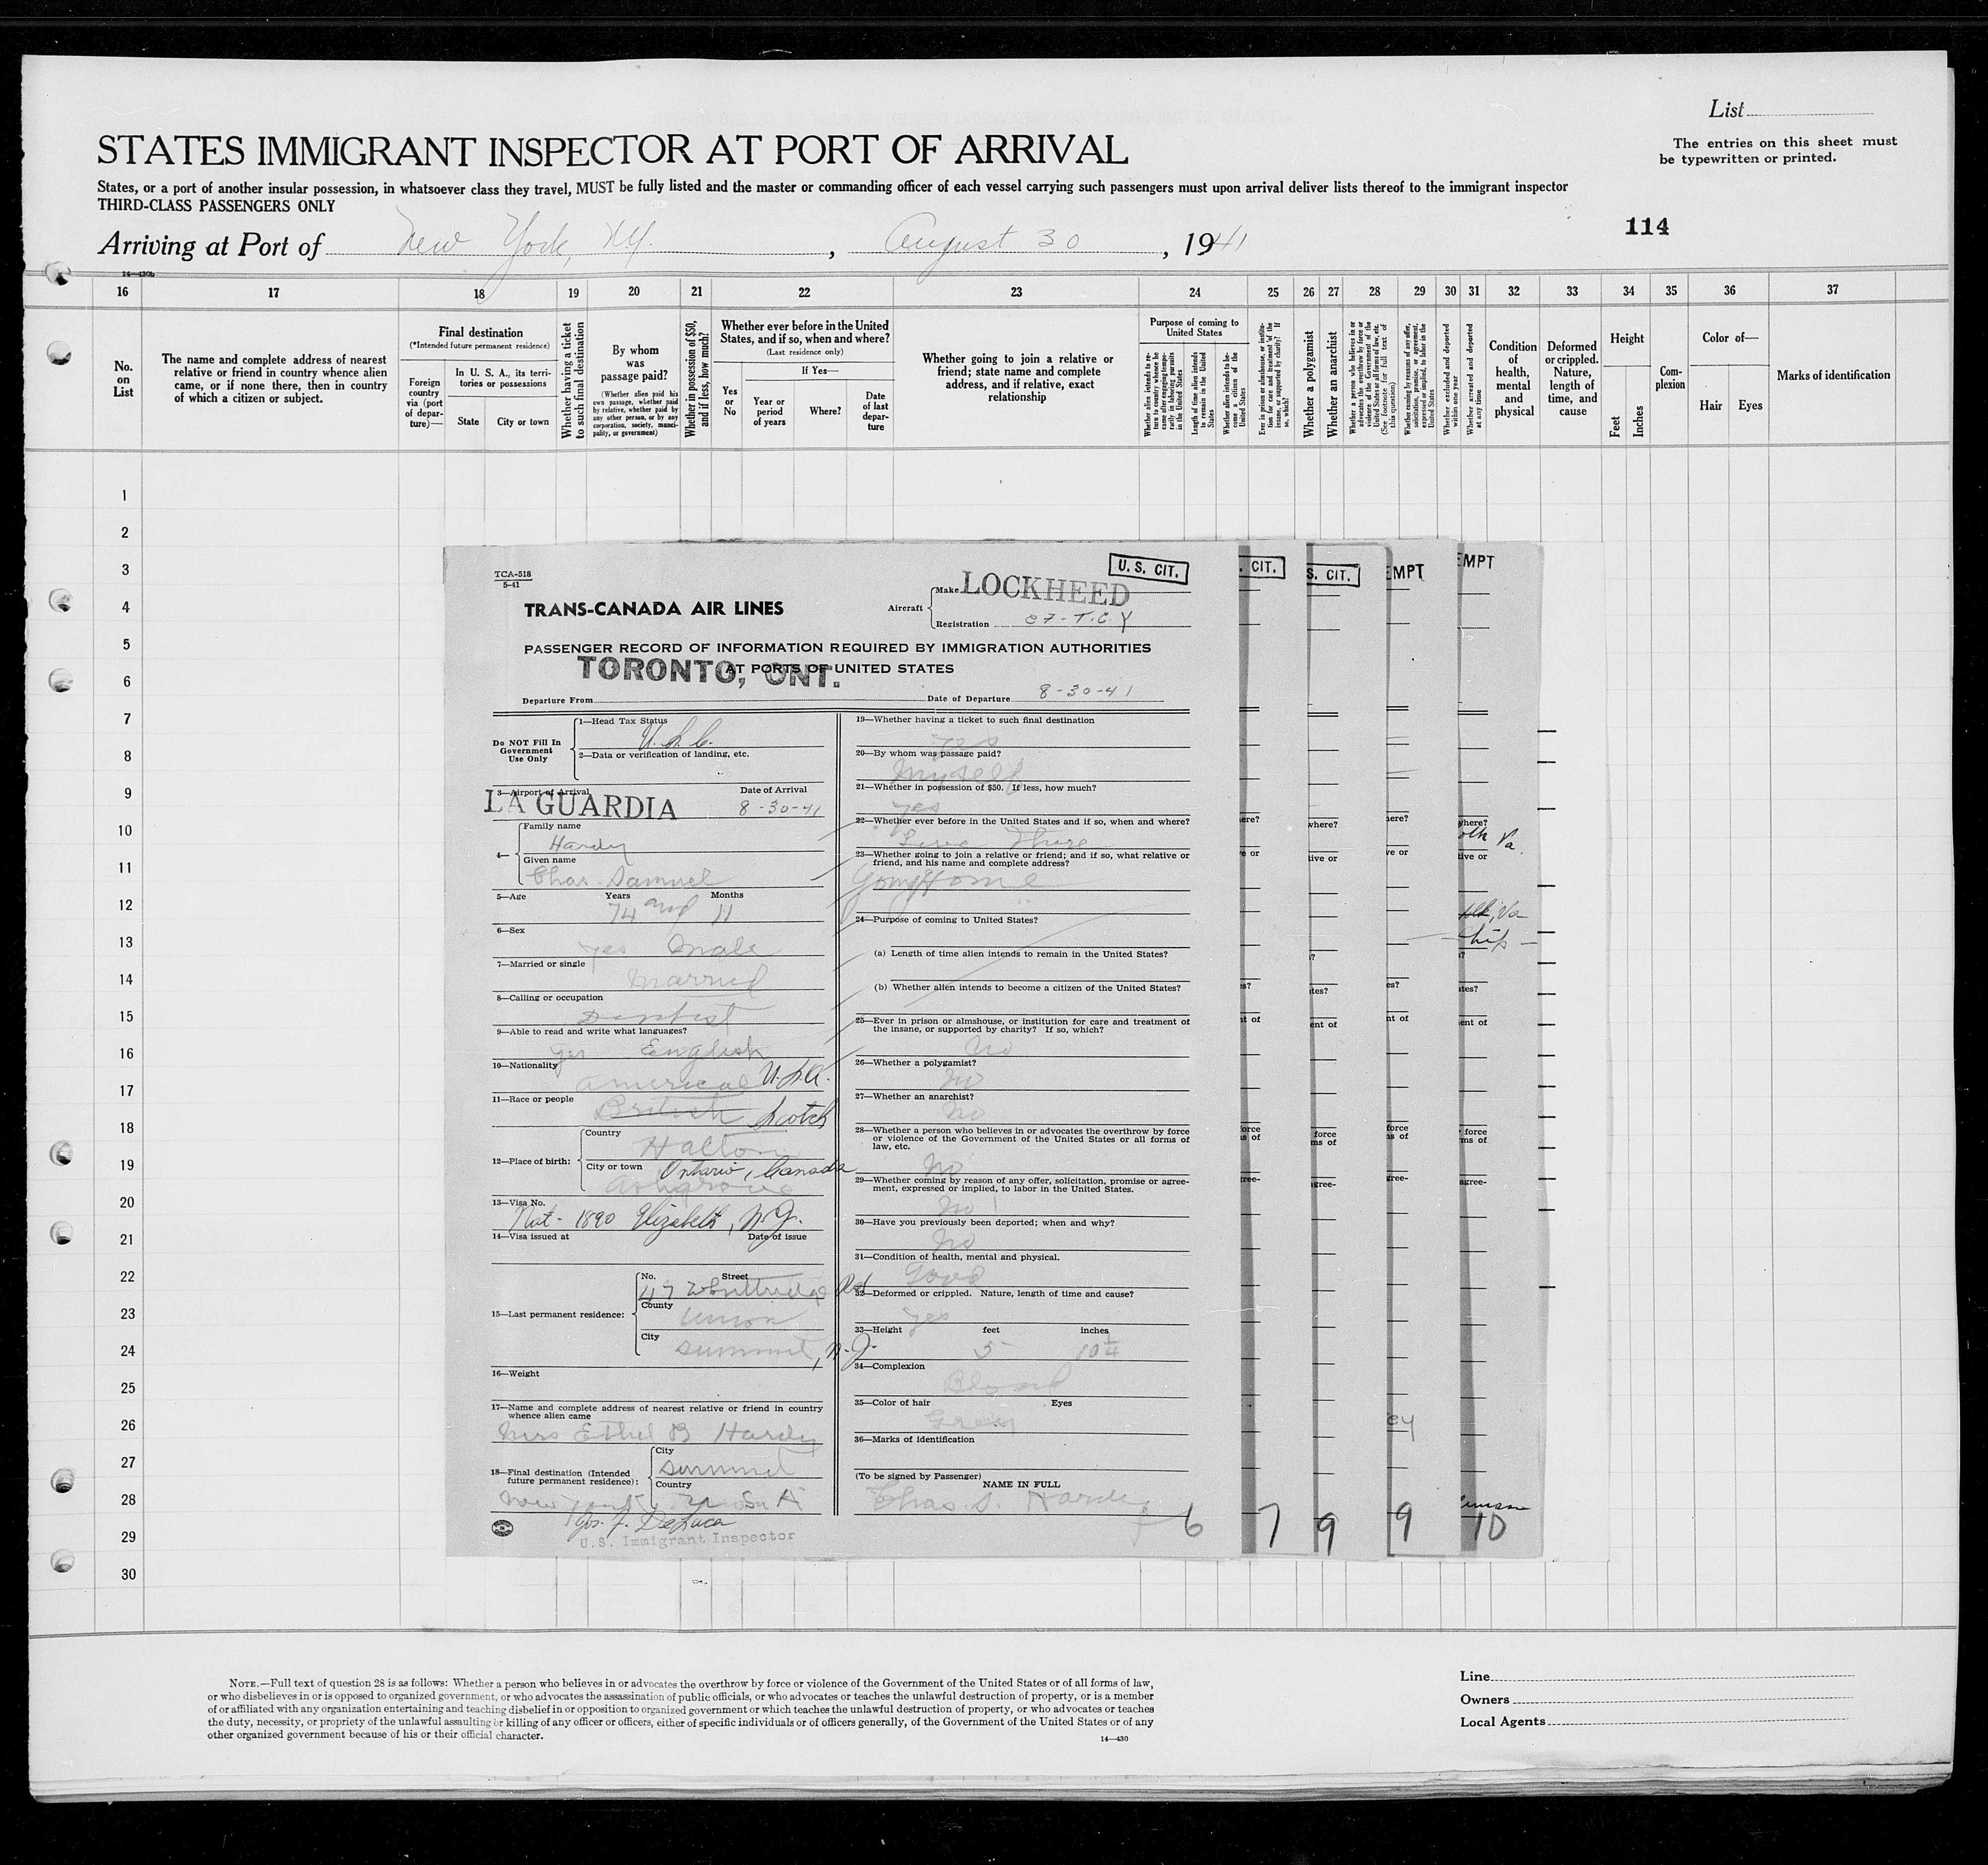 List
The entries on this sheet must
be typewritten or printed.
STATES IMMIGRANT INSPECTOR AT PORT OF ARRIVAL
States, or a port of another insular possession, in whatsoever class they travel, MUST be fully listed and the master or commanding officer of each vessel carrying such passengers must upon arrival deliver lists thereof to the immigrant inspector
THIRD-CLASS PASSENGERS ONLY
114
Arriving at Port of New York, NY. , August 30 , 1941
14—430b
16 17 18 19 20 21 22 23 24 25 26 27 28 29 30 31 32 33 34 35 36 37
No. on List
The name and complete address of nearest relative or friend in country whence alien came, or if none there, then in country of which a citizen or subject.
Final destination
(*Intended future permanent residence)
Foreign country via (port of departure)—
In U. S. A., its territories or possessions
State
City or town
Whether having a ticket to such final destination
By whom was passage paid?
(Whether alien paid his own passage, whether paid by relative, whether paid by any other person, or by any corporation, society, municipality, or government)
Whether in possession of $50, and if less, how much?
Whether ever before in the United States, and if so, when and where?
(Last residence only)
Yes or No
If Yes—
Year or period of years
Where?
Date of last departure
Whether going to join a relative or friend; state name and complete address, and if relative, exact relationship
Purpose of coming to United States
Whether alien intends to return to country whence he came after engaging temporarily in laboring pursuits in the United States
Length of time alien intends to remain in the United States
Whether alien intends to become a citizen of the United States
Ever in prison or almshouse, or institution for care and treatment of the insane, or supported by charity? If so, which?
Whether a polygamist
Whether an anarchist
Whether a person who believes in or advocates the overthrow by force or violence of the Government of the United States or all forms of law, etc. (See footnote for full text of this question)
Whether coming by reasons of any offer, solicitation, promise, or agreement, expressed or implied, to labor in the United States
Whether excluded and deported within one year
Whether arrested and deported at any time
Condition of health, mental and physical
Deformed or crippled. Nature, length of time, and cause
Height
Feet
Inches
Complexion
Color of—
Hair
Eyes
Marks of identification
1
2
3
4
5
6
7
8
9
10
11
12
13
14
15
16
17
18
19
20
21
22
23
24
25
26
27
28
29
30
TCA-518
5-41
U. S. CIT.
. CIT.
S. CIT.
EMPT
EMPT
TRANS-CANADA AIR LINES
Aircraft
Make LOCKHEED
Registration
PASSENGER RECORD OF INFORMATION REQUIRED BY IMMIGRATION AUTHORITIES
AT PORTS OF UNITED STATES
TORONTO, ONT.
Departure From
Date of Departure 8-30-41
Do NOT Fill In Government Use Only
1—Head Tax Status
U.S.C.
2—Data or verification of landing, etc.
3—Airport of Arrival
Date of Arrival
LA GUARDIA 8-30-41
4—
Family name
Hardy
Given name
Chas. Samuel
5—Age Years Months
74 and 11
6—Sex
yes Male
7—Married or single
Married
8—Calling or occupation
Dentist
9—Able to read and write what languages?
yes English
10—Nationality
American U.S.A.
11—Race or people
British Scotch
12—Place of birth:
Country
Halton
City or town
Ontario, Canada
Ashgrove
13—Visa No.
Nat- 1890 Elizabeth, N.J.
14—Visa issued at Date of issue
15—Last permanent residence:
No. Street
47 Whittredge Rd
County
Union
City
Summit, N.J.
16—Weight
17—Name and complete address of nearest relative or friend in country
whence alien came
Mrs Ethel B Hardy
18—Final destination (Intended
future permanent residence):
City
Summit
Country
Jos. F. DeLuca
U.S. Immigrant Inspector
19—Whether having a ticket to such final destination
Yes
20—By whom was passage paid?
Myself
21—Whether in possession of $50. If less, how much?
Yes
22—Whether ever before in the United States and if so, when and where?
Live There
23—Whether going to join a relative or friend; and if so, what relative or
friend, and his name and complete address?
Going Home
24—Purpose of coming to United States?
(a) Length of time alien intends to remain in the United States?
(b) Whether alien intends to become a citizen of the United States?
25—Ever in prison or almshouse, or institution for care and treatment of
the insane, or supported by charity? If so, which?
No
26—Whether a polygamist?
No
27—Whether an anarchist?
No
28—Whether a person who believes in or advocates the overthrow by force
or violence of the Government of the United States or all forms of
law, etc.
No
29—Whether coming by reason of any offer, solicitation, promise or agreement, expressed or implied, to labor in the United States.
No
30—Have you previously been deported; when and why?
No
31—Condition of health, mental and physical.
Good
32—Deformed or crippled. Nature, length of time and cause?
yes
33—Height feet inches
5 10 1/4
34—Complexion
Blond
35—Color of hair Eyes
Grey
36—Marks of identification
(To be signed by Passenger)
NAME IN FULL
Chas. S. Hardy
6 7 9 9 10
NOTE.—Full text of question 28 is as follows: Whether a person who believes in or advocates the overthrow by force or violence of the Government of the United States or of all forms of law,
or who disbelieves in or is opposed to organized government, or who advocates the assassination of public officials, or who advocates or teaches the unlawful destruction of property, or is a member
of or affiliated with any organization entertaining and teaching disbelief in or opposition to organized government or which teaches the unlawful destruction of property, or who advocates or teaches
the duty, necessity, or propriety of the unlawful assaulting or killing of any officer or officers, either of specific individuals or of officers generally, of the Government of the United States or of any
other organized government because of his or their official character.
14—430
Line
Owners
Local Agents